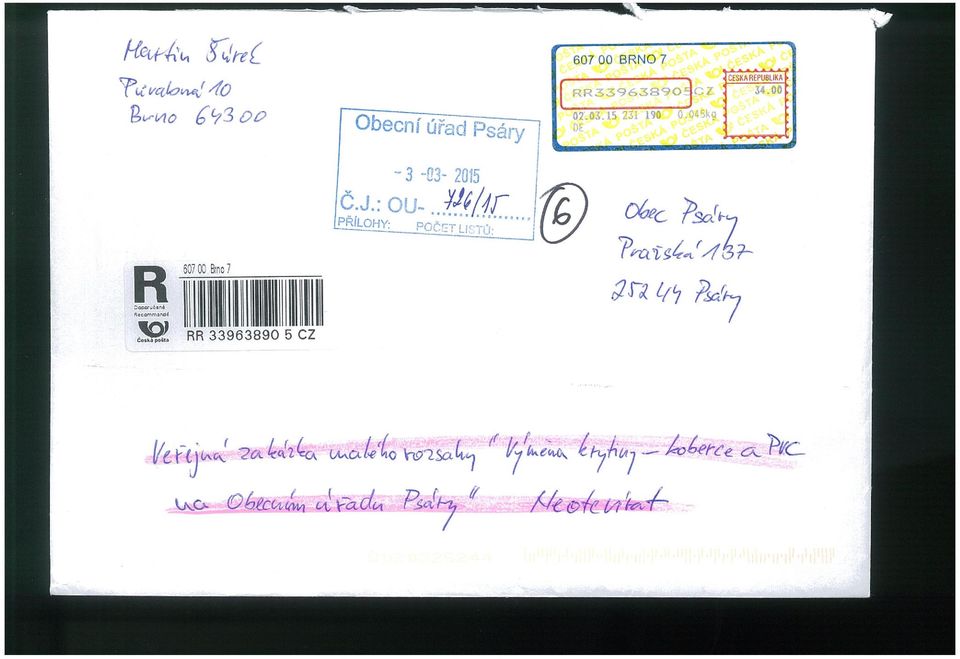 Martin Šúrek
10
Brno 643 00
607 00 BRNO 7
RR339638905CZ
ČESKÁ REPUBLIKA
34.00
02.03.15 231 190 0.048kg
DE
ČESKÁ POŠTA
Obecní úřad Psáry
- 3 -03- 2015
Č.J.: OU- 726/15
PŘÍLOHY: POČET LISTŮ:
6
Obec Psáry
Pražská 137
252 44 Psáry
607 00 Brno 7
R
Doporučeně
Recommandé
Česká pošta
RR 33963890 5 CZ
Veřejná zakázka malého rozsahu "Výměna krytiny - koberce a PVC
na Obecním úřadu Psáry" Neotevírat